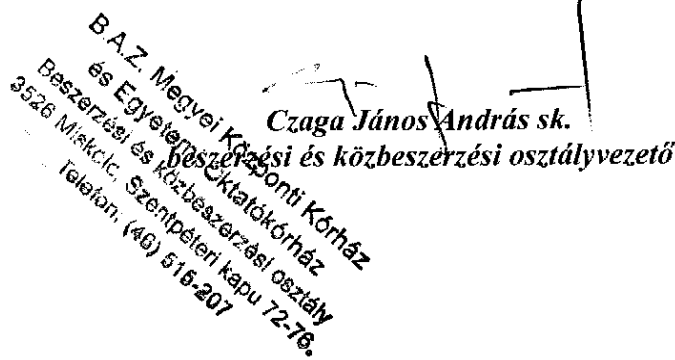 B.A.Z. Megyei Központi Kórház
és Egyetemi Oktatókórház
Beszerzési és közbeszerzési osztály
3526 Miskolc, Szentpéteri kapu 72-76.
Telefon: (46) 515-207
Czaga János András sk.
beszerzési és közbeszerzési osztályvezető